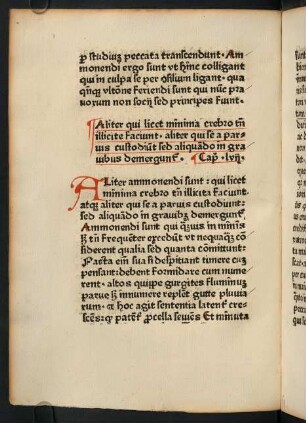 ꝑ studiuʒ peccata transcendunt. Am
monendi ergo sunt vt hinc colligant
qui in culpa se per osilium ligant. qua
qnꝫ vltõne feriendi sunt qui nũc pra
uorum non socij sed principes fiunt.
Aliter qui licet minima crebro tñ
illicite faciunt. aliter qui se a par
uis custodiũt sed aliquãdo in gra
uibus demergunt. Cap. lvij.
Aliter ammonendi sunt: qui licet
minima crebro tñ illicita faciunt
atqꝫ aliter qui se a paruis custodiunt:
sed aliquãdo in grauibꝫ demergunt
Ammonendi sunt qui quis in minim
is tñ frequẽter excedũt vt nequaꝗ cõ
siderent qualia sed quanta cõmittunt:
facta em sua si despitiant timere cũ
pensant: debent formidare cum nume
rent. altos quipe gurgites fluminuʒ
parue sʒ innumere replent gutte pluuia
rum. hoc agit sententia latent cre
scẽs: patent procella seuiẽs Et minuta